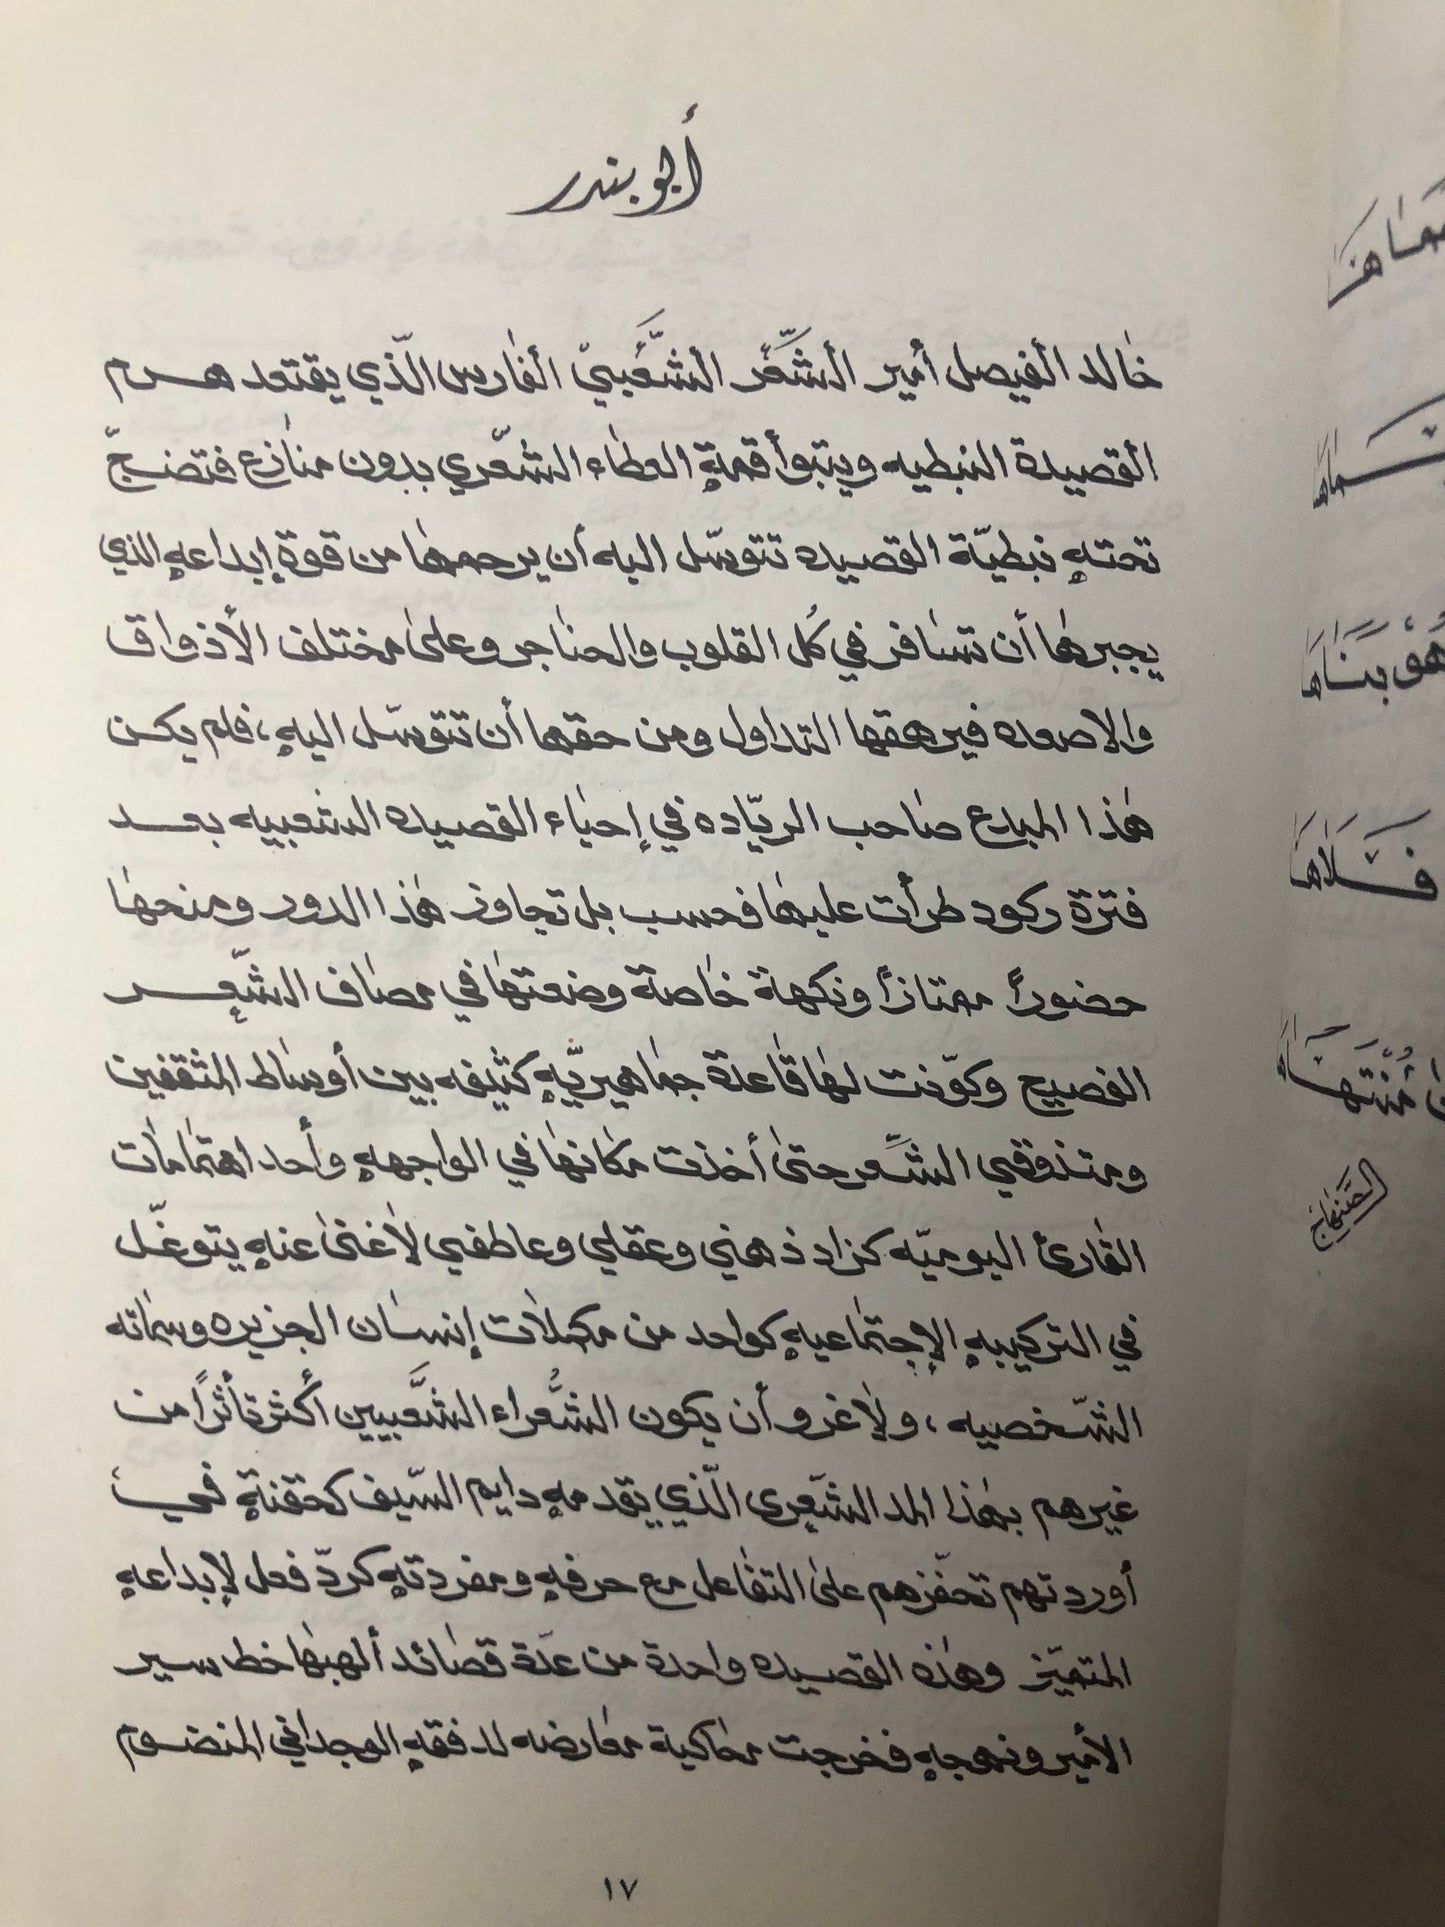 أبو بندر
خالد الفيصل أمير الشِّعْر الشَّعْبيّ الفارس الّذي يقتعد هرم
القصيدة النبطيه ويتبوأ قمة العطاء الشّعري بدون منازع فتضجّ
تحته نبطيّة القصيده تتوسّل اليه أن يرحمها من قوة إبداعه الذي
يجبرها أن تسافر في كُل القلوب والحناجر وعلى مختلف الأذواق
والاصعده فيرهقها التداول ومن حقها أن تتوسّل اليه ، فلم يكن
هذا المبدع صاحب الريّاده في إحياء القصيده الشعبيه بعد
فترة ركود طرأت عليها فحسب بل تجاوز هذا الدور ومنحها
حضوراً ممتازاً ونكهة خاصة وضعتها في مصاف الشّعِر
الفصيح وكوّنت لها قاعدة جماهيريّه كثيفه بين أوساط المثقفين
ومتذوقي الشِّعر حتىٰ أخذت مكانها في الواجهه وأحد اهتمامات
القارئ اليوميّه كزاد ذهني وعقلي وعاطفي لاغنىٰ عنه يتوغّل
في التركيبه الإجتماعيه كواحد من مكملات إنسان الجزيره وسماته
الشّخصيه ، ولاغرو أن يكون الشُّعراء الشَّعبيين أكثر تأثراً من
غيرهم بهذا المد الشّعِرى الّذي يقدمه دايم السّيف كحقنة في
أوردتهم تحفّزهم علىٰ التفاعل مع حرفه ومفردته كردّ فعل لإبداعه
المتميّز وهذه القصيده واحدة من عدّة قصائد ألهبها خط سير
الأمير ونهجه فخرجت محاكية معارضه لدفقه الوجداني المنضوم
١٧
هوَ بناها
فلاها
الصنهاج